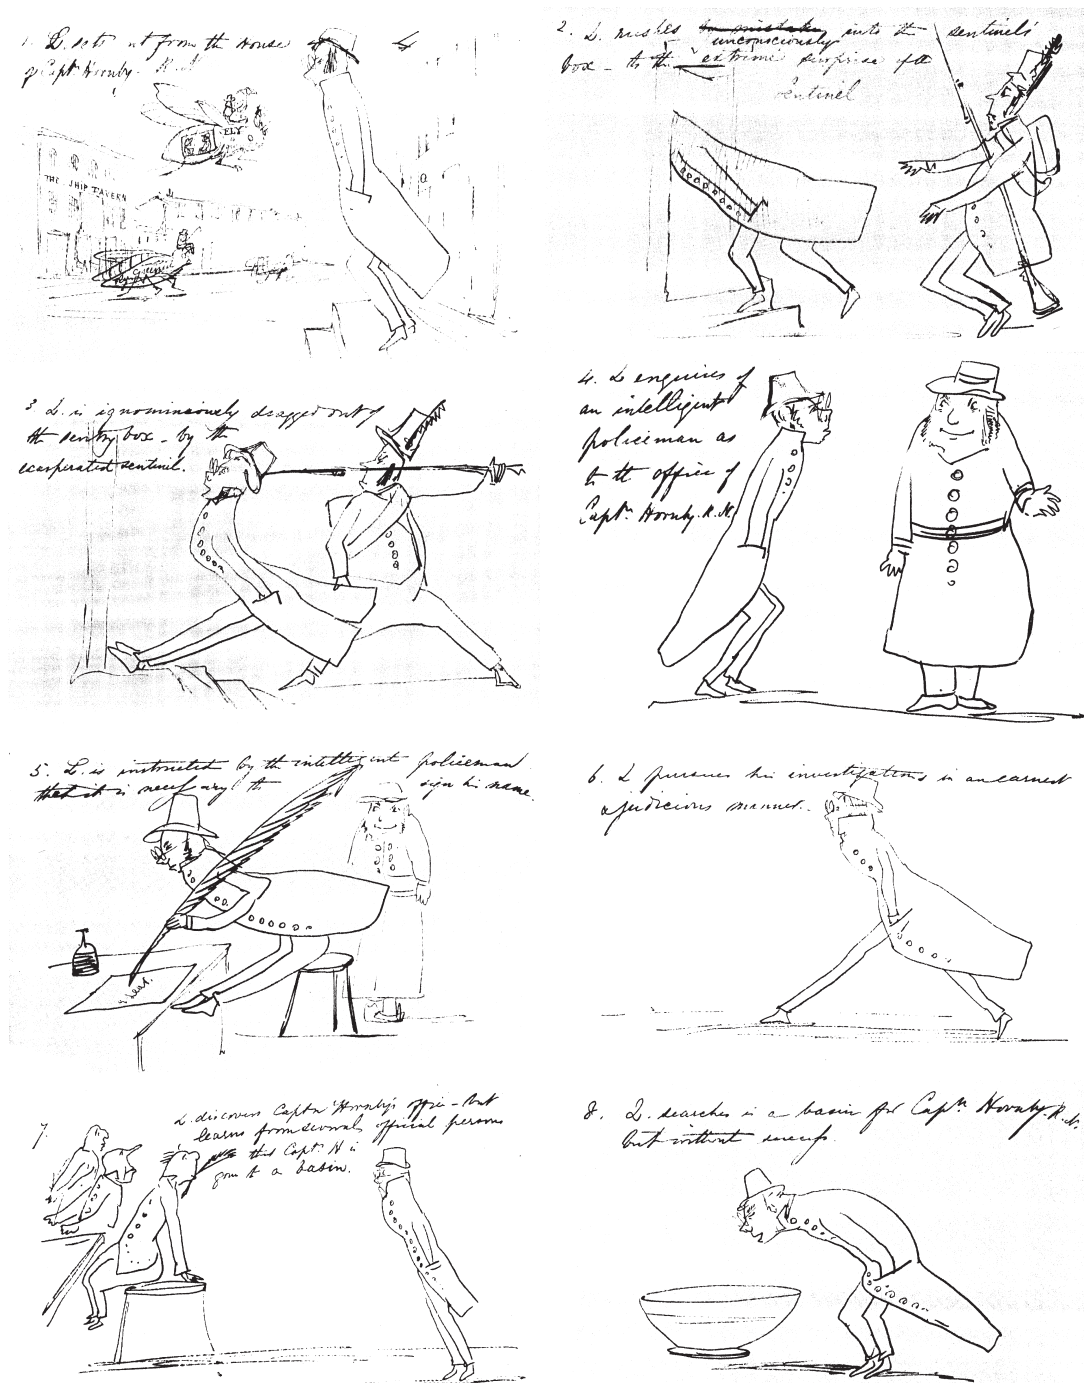 1. L. sets out from the house
of Captn Hornby. R.N
ELY
THE SHIP TAVERN
2. L. rushes by mistake unconsciously into the sentinel's
box – to the extreme surprise of the
Sentinel
3. L. is ignominiously dragged out of
the sentry box – by the
exasperated sentinel.
4. L enquires of
an intelligent
policeman as
to the office of
Captn. Hornby. R.N.
5. L. is instructed by the intelligent policeman
that it is necessary to sign his name.
6. L pursues his investigations in an earnest
& judicious manner.
7. L. discovers Captn Hornby's office – but
learns from several official persons
that Captn. H is
gone to a basin.
8. L. searches in a basin for Captn Hornby. R.N.
but without success.